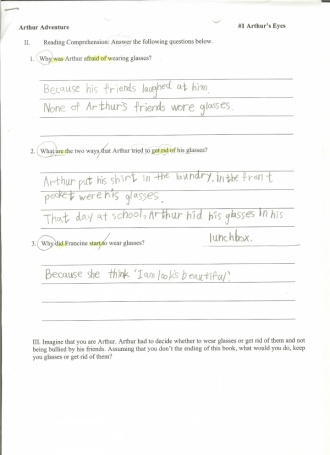 Arthur Adventure #1 Arthur's Eyes
II. Reading Comprehension: Answer the following questions below.
1. Why was Arthur afraid of wearing glasses?
Because his friends laughed at him.
None of Arthur's friends wore glasses.
2. What are the two ways that Arthur tried to get rid of his glasses?
Arthur put his shirt in the laundry. In the front
pocket were his glasses.
That day at school, Arthur hid his glasses in his
lunchbox.
3. Why did Francine start to wear glasses?
Because she think 'I am look's beautiful'.
III. Imagine that you are Arthur. Arthur had to decide whether to wear glasses or get rid of them and not
being bullied by his friends. Assuming that you don't the ending of this book, what would you do, keep
you glasses or get rid of them?